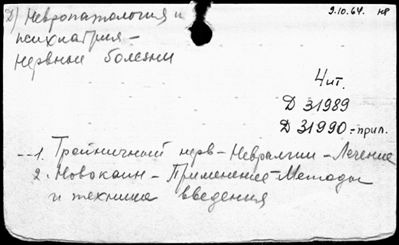 Д) Невропатология и
психиатрия –
нервные болезни
9.10.64. нр
Чит.
Д 31989
Д 31990.-прил.
--1. Тройничный нерв – Невралгии – Лечение
2. Новокаин – Применение – Методы
и техника введения